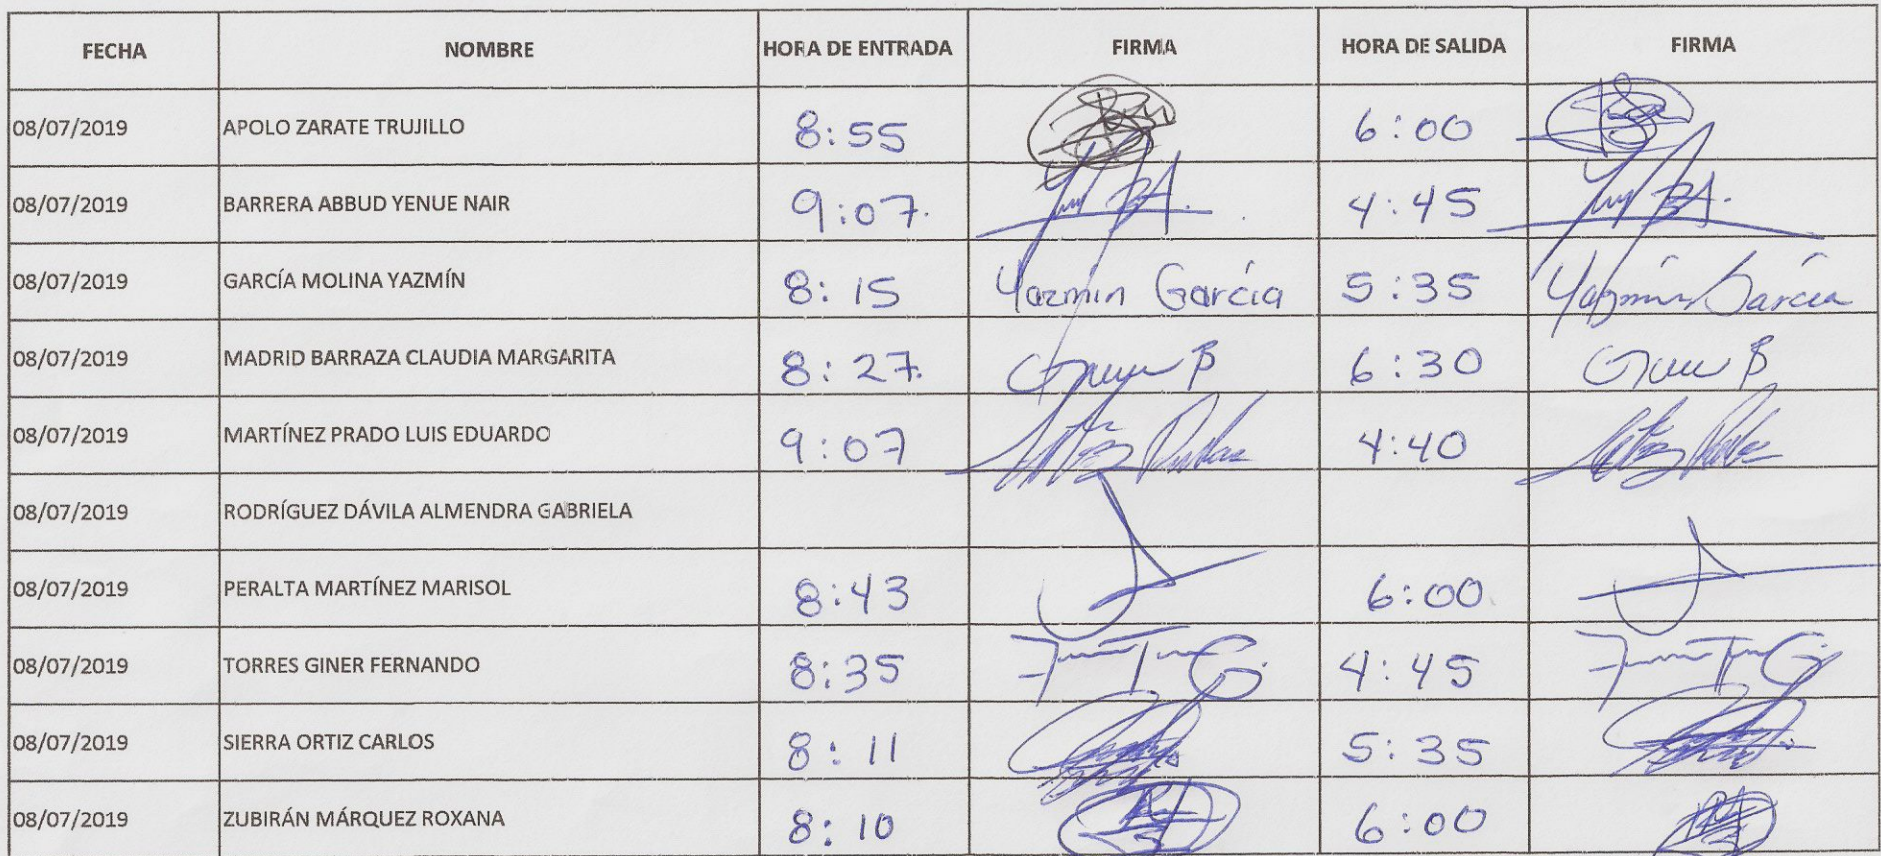 FECHA NOMBRE HORA DE ENTRADA FIRMA HORA DE SALIDA FIRMA
08/07/2019 APOLO ZARATE TRUJILLO 8:55 6:00
08/07/2019 BARRERA ABBUD YENUE NAIR 9:07. 4:45
08/07/2019 GARCÍA MOLINA YAZMÍN 8:15 Yazmin García 5:35 Yazmín García
08/07/2019 MADRID BARRAZA CLAUDIA MARGARITA 8:27. 6:30
08/07/2019 MARTÍNEZ PRADO LUIS EDUARDO 9:07 4:40
08/07/2019 RODRÍGUEZ DÁVILA ALMENDRA GABRIELA
08/07/2019 PERALTA MARTÍNEZ MARISOL 8:43 6:00
08/07/2019 TORRES GINER FERNANDO 8:35 4:45
08/07/2019 SIERRA ORTIZ CARLOS 8:11 5:35
08/07/2019 ZUBIRÁN MÁRQUEZ ROXANA 8:10 6:00